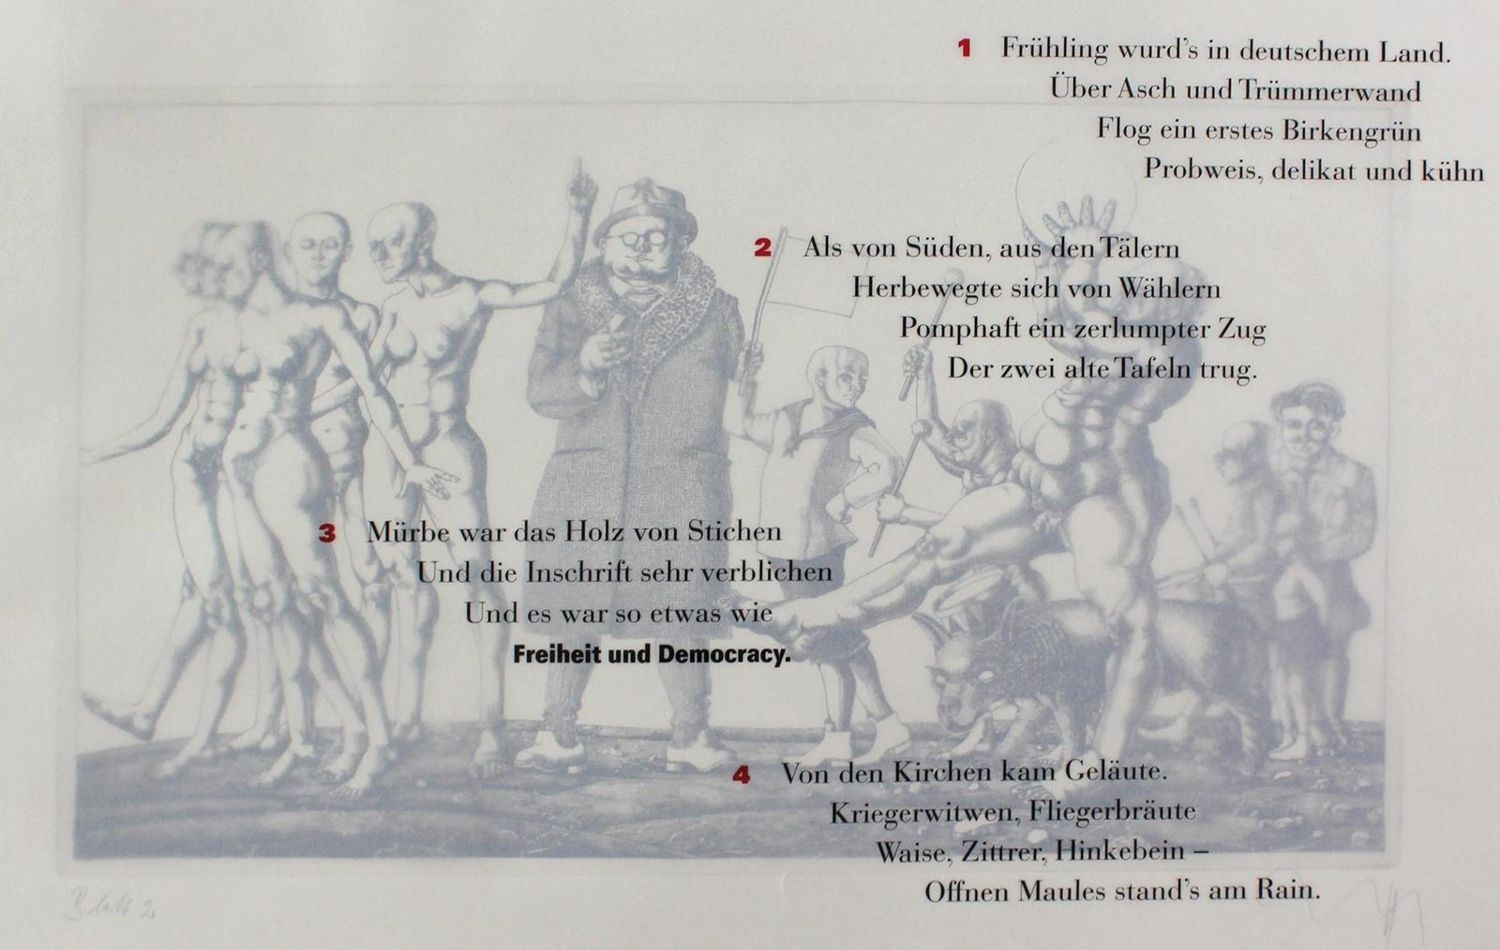 1 Frühling wurd's in deutschem Land.
Über Asch und Trümmerwand
Flog ein erstes Birkengrün
Probweis, delikat und kühn
2 Als von Süden, aus den Tälern
Herbewegte sich von Wählern
Pomphaft ein zerlumpter Zug
Der zwei alte Tafeln trug.
3 Mürbe war das Holz von Stichen
Und die Inschrift sehr verblichen
Und es war so etwas wie
Freiheit und Democracy.
4 Von den Kirchen kam Geläute.
Kriegerwitwen, Fliegerbräute
Waise, Zittrer, Hinkebein –
Offnen Maules stand's am Rain.
Blatt 2